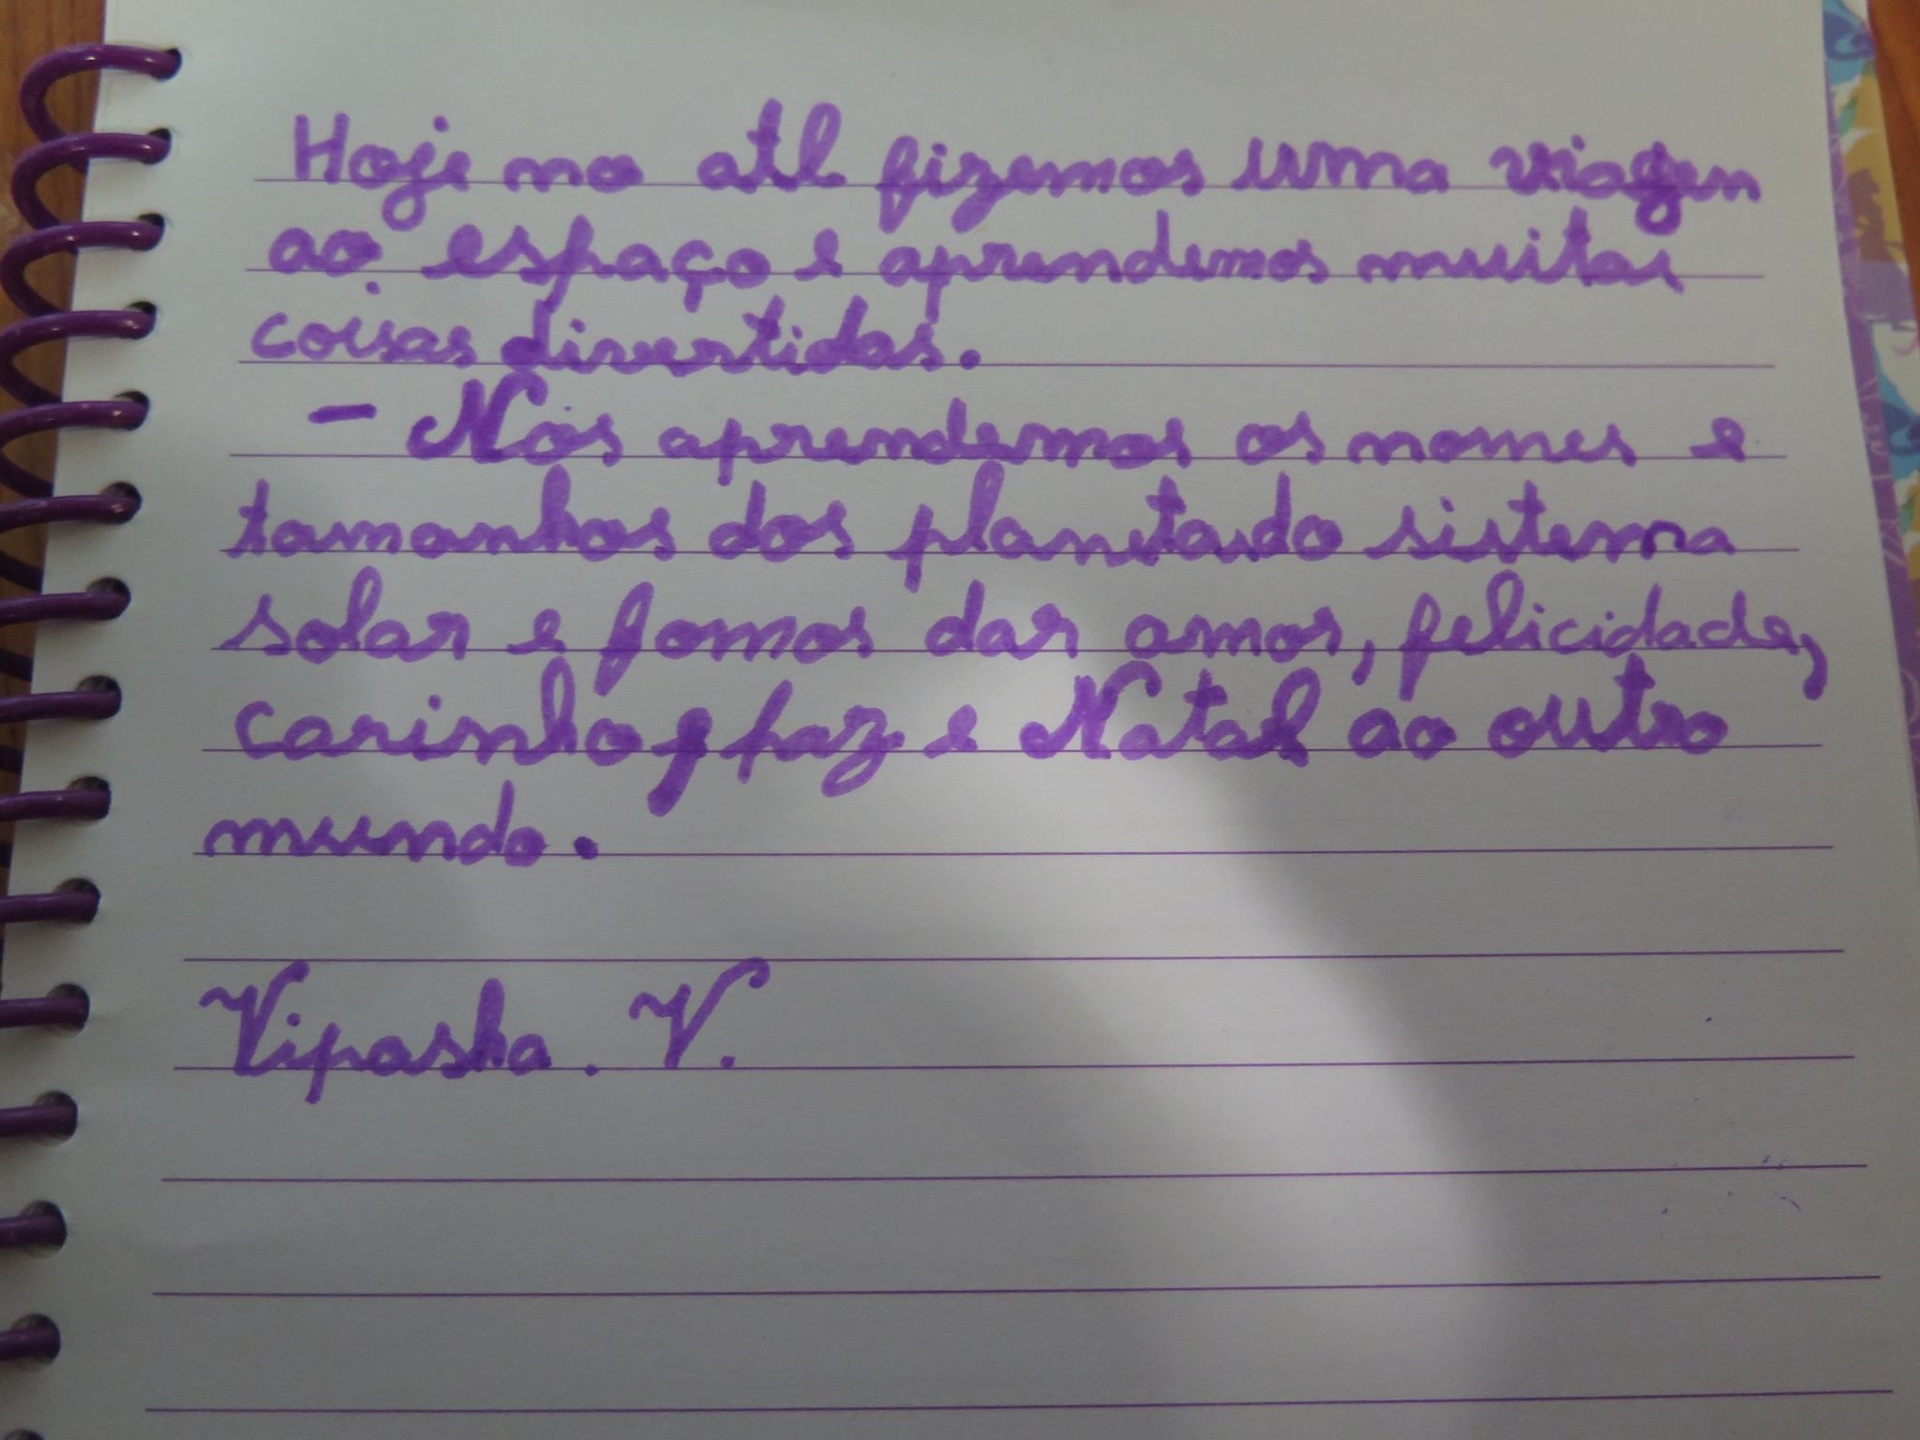 Hoje no atl fizemos uma viagem
ao espaço e aprendemos muitas
coisas divertidas.
- Nós aprendemos os nomes e
tamanhos dos planetas do sistema
solar e fomos dar amor, felicidade,
carinho, paz e Natal ao outro
mundo.
Vipasha. V.